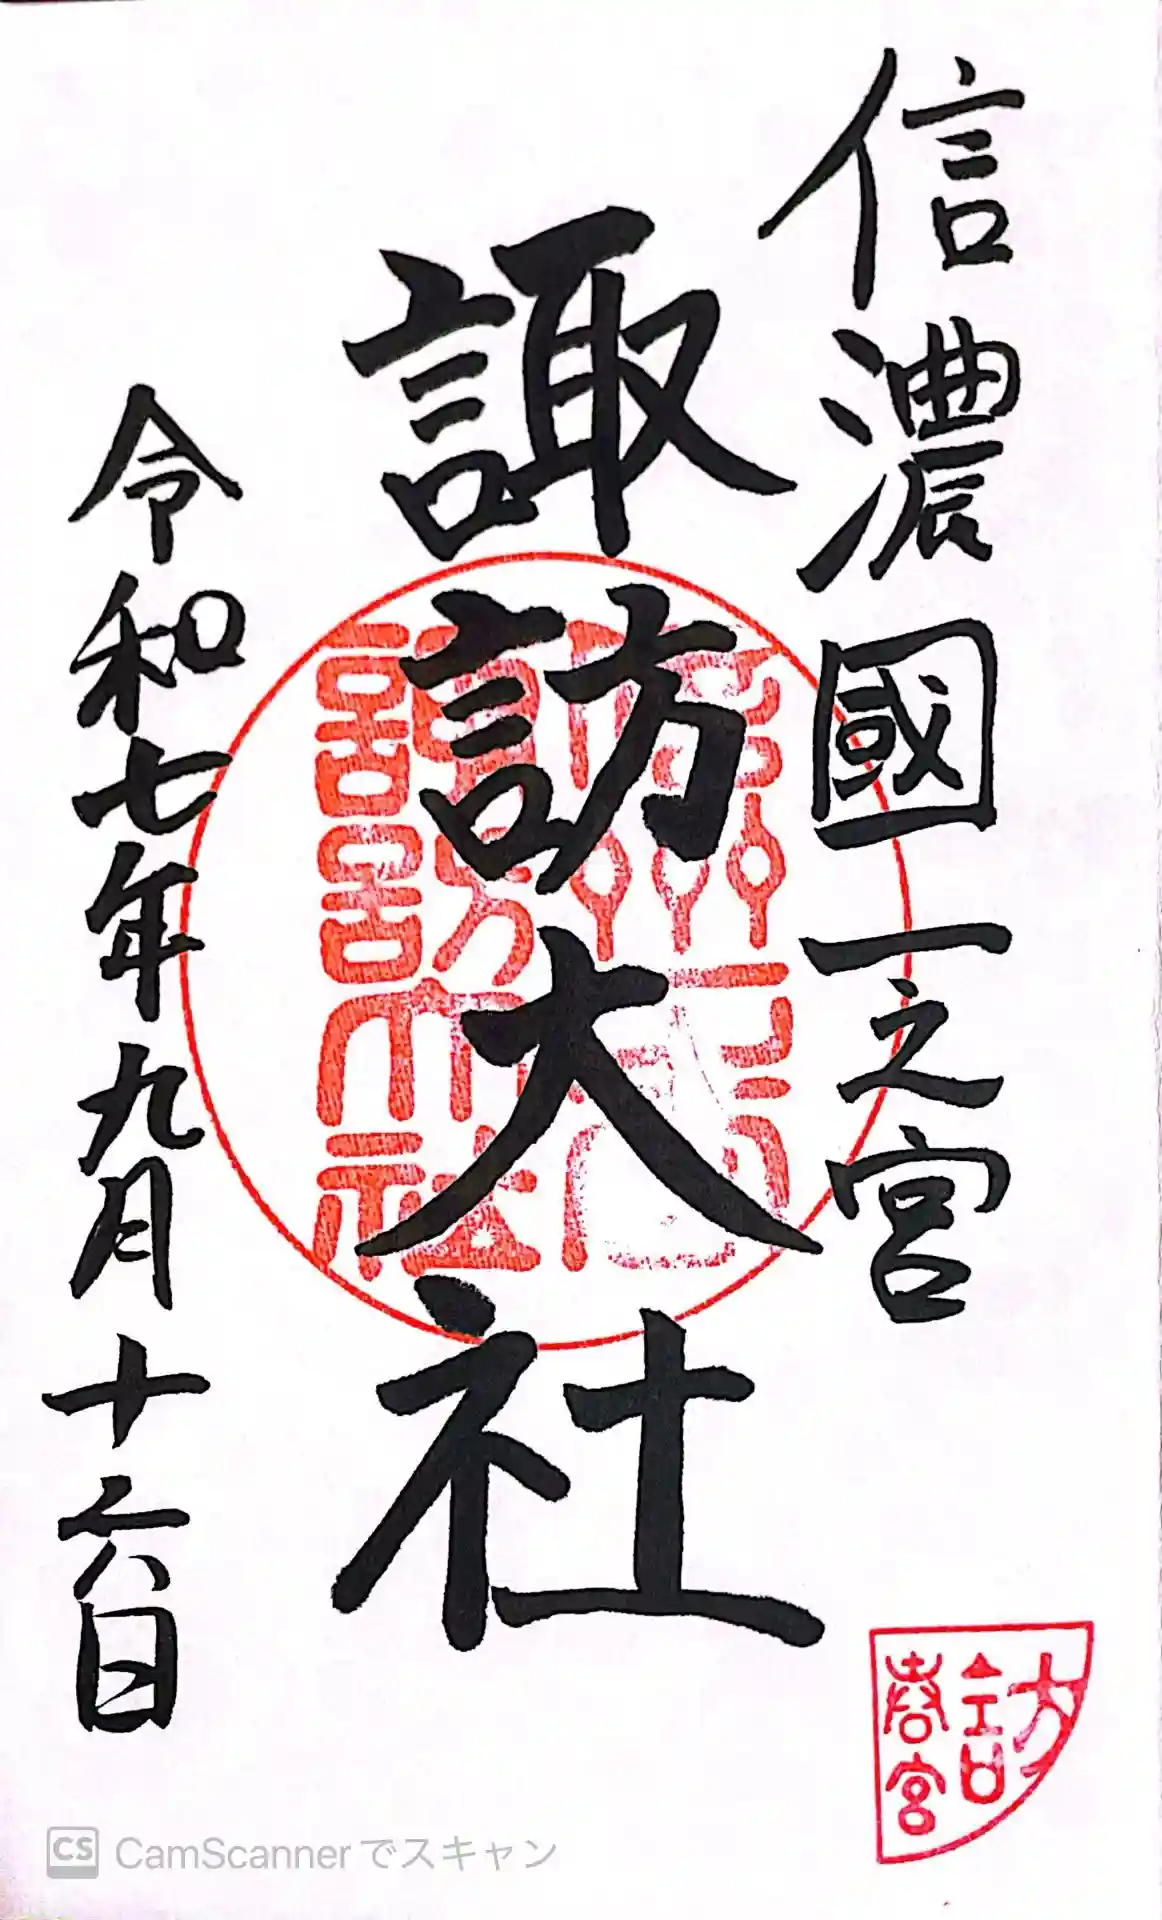 信濃國一之宮
諏訪大社
令和七年九月十六日
諏訪大社
訪
春宮
CS CamScannerでスキャン